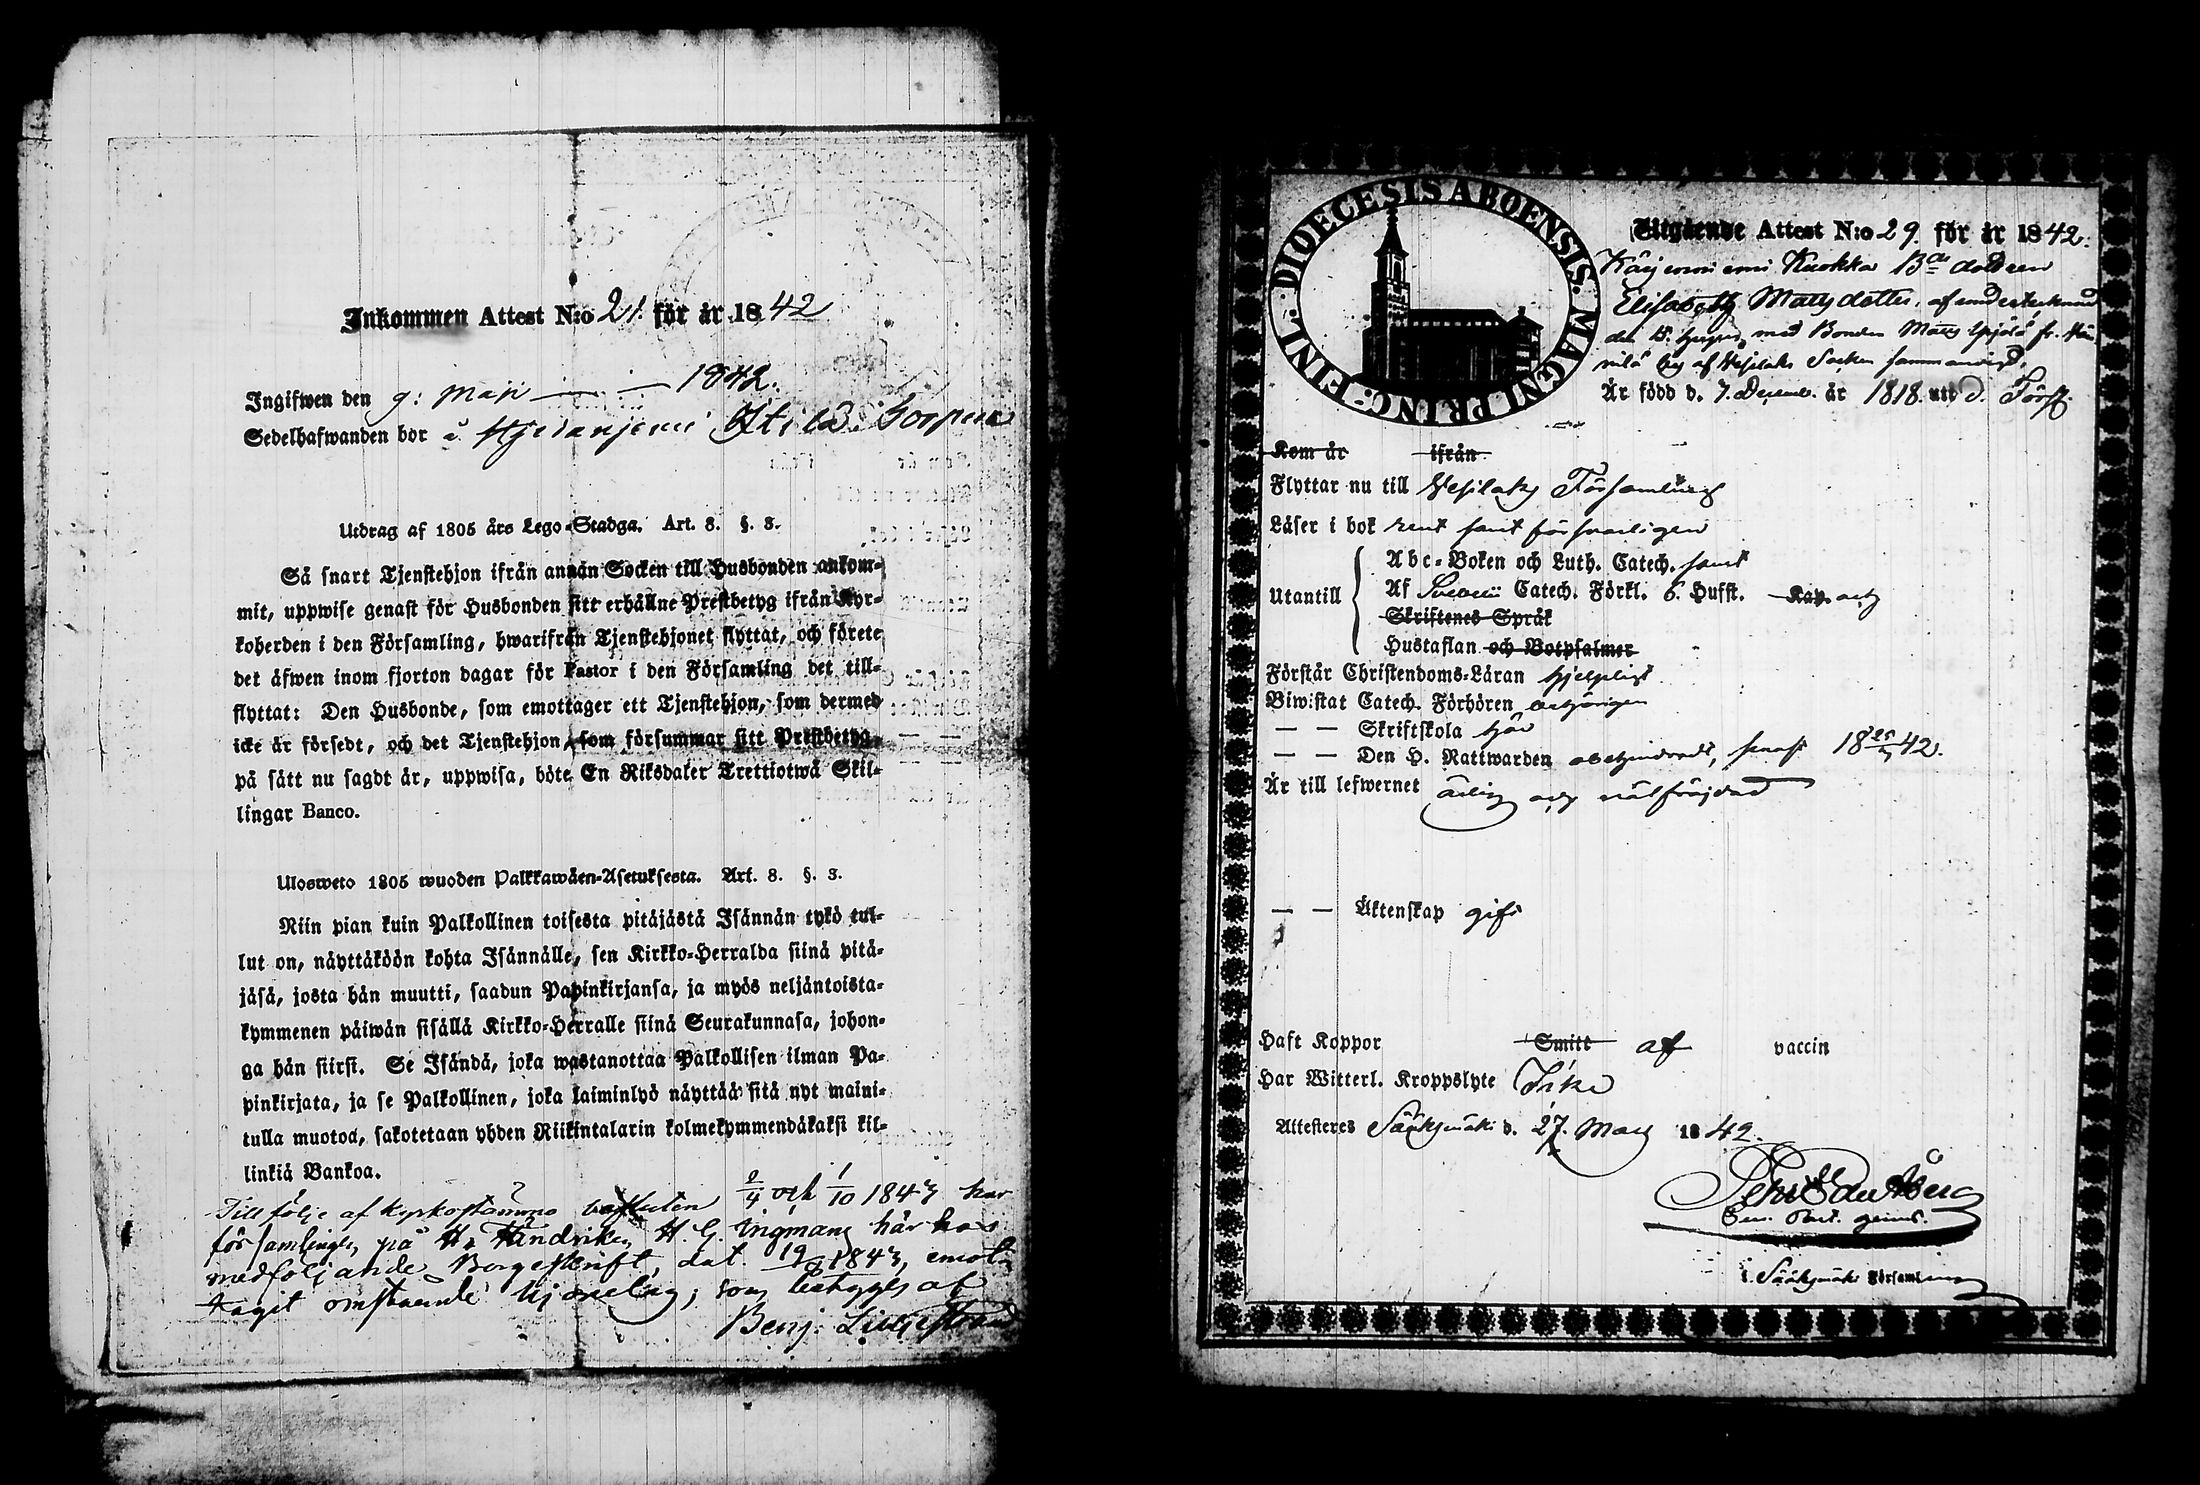 Inkommen Attest N:o 21. för år 1842
Ingifwen den 9: Maji — — 1842.
Sedelhafwanden bor å
Utdrag af 1805 års Lego-Stadga. Art. 8. §. 3.
Så snart Tjenstehjon ifrån annan Socken till Husbonden ankom-
mit, uppwise genast för Husbonden sitt erhållne Prestbetyg ifrån Kyr-
koherden i den Församling, hwarifrån Tjenstehjonet flyttat, och förete
det äfwen inom fjorton dagar för Pastor i den Församling det till-
flyttat: Den Husbonde, som emottager ett Tjenstehjon, som dermed
icke är försedt, och det Tjenstehjon, som försummar sitt Prestbetyg,
på sätt nu sagdt är, uppwisa, böte En Riksdaler Trettiotwå Skil-
lingar Banco.
Ulosweto 1805 wuoden Palkkawäen-Asetuksesta. Art. 8. §. 3.
Niin pian kuin Palkollinen toisesta pitäjästä Isännän tykö tul-
lut on, näyttäköön kohta Isännälle, sen Kirkko-Herralda siinä pitä-
jäsä, josta hän muutti, saadun Papinkirjansa, ja myös neljäntoista-
kymmenen päiwän sisällä Kirkko-Herralle siinä Seurakunnasa, johon-
ga hän siirsi. Se Isändä, joka wastanottaa Palkollisen ilman Pa-
pinkirjata, ja se Palkollinen, joka laiminlyö näyttää sitä nyt maini-
tulla muotoa, sakotetaan yhden Riikintalarin kolmekymmendäkaksi kil-
linkiä Bankoa.
Till följe af Kyrkostämmo besluten 2/4 och 1/10 1843 har
församlingen på H. G. Ingmans här hos
medföljande Borgeskrift, dat. 19 1843, emot-
tagit omstående Hjonelag; som betygas af
Benj. Liljestrand
DIOECESIS ABOENSIS. MAGNI PRINC: FINL.
Utgående Attest N:o 29. för år 1842.
Kuokka Bde dottren
Elisabeth Mattsdotter,
med Bonden Matts fr.
by af Vesilaks Socken
Är född d. 7. Decemb. år 1818. uti d. Förs.
Kom år ifrån
Flyttar nu till Vesilaks Församling
Läser i bok rent samt försvarligen
Utantill
Abc-Boken och Luth. Catech. samt
Af Svebelii Catech. Förkl. 6. Hufst. Kap. och
Skriftenes Språk
Hustaflan och Botpsalmer
Förstår Christendoms-Läran hjelpligt
Biwistat Catech. Förhören årligen
— — Skriftskola här
— — Den H. Nattwarden obehindradt, senast 18 25/3 42.
Är till lefwernet ärlig och välfräjdad
— — Äktenskap gift
Haft Koppor Smitt af vaccin
Har Witterl. Kroppslyte Icke
Attesteras Sääksmäki d. 27. Maj 1842.
i Sääksmäki Församling